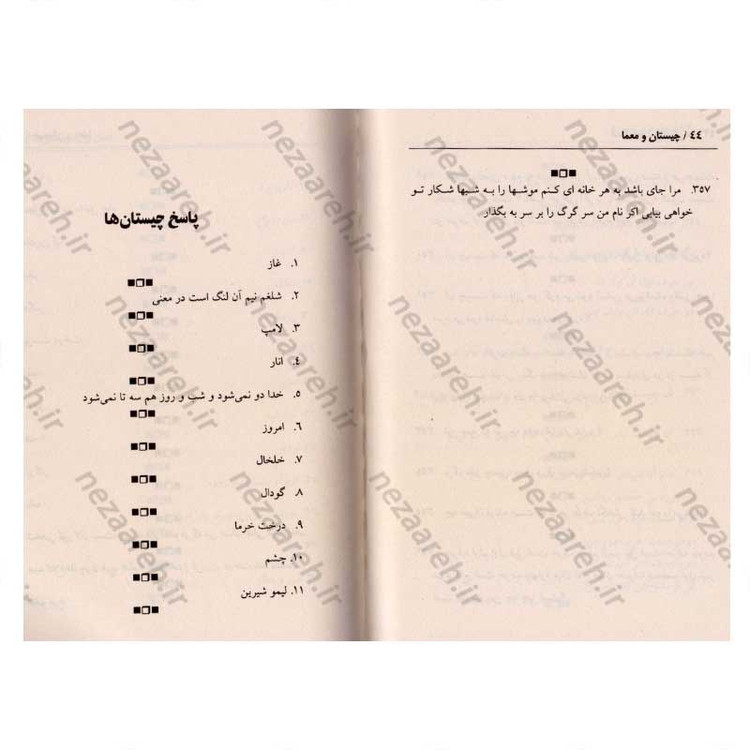 ۴۴ / چیستان و معما
۳۵۷. مرا جای باشد به هر خانه ای کنم موشها را به شبها شکار تو
خواهی بیابی اکر نام من سر گرگ را بر سر به بگذار
پاسخ چیستان‌ها
۱. غاز
۲. شلغم نیم آن لنگ است در معنی
۳. لامپ
۴. انار
۵. خدا دو نمی‌شود و شب و روز هم سه تا نمی‌شود
۶. امروز
۷. خلخال
۸. گودال
۹. درخت خرما
۱۰. چشم
۱۱. لیمو شیرین
nezaareh.ir